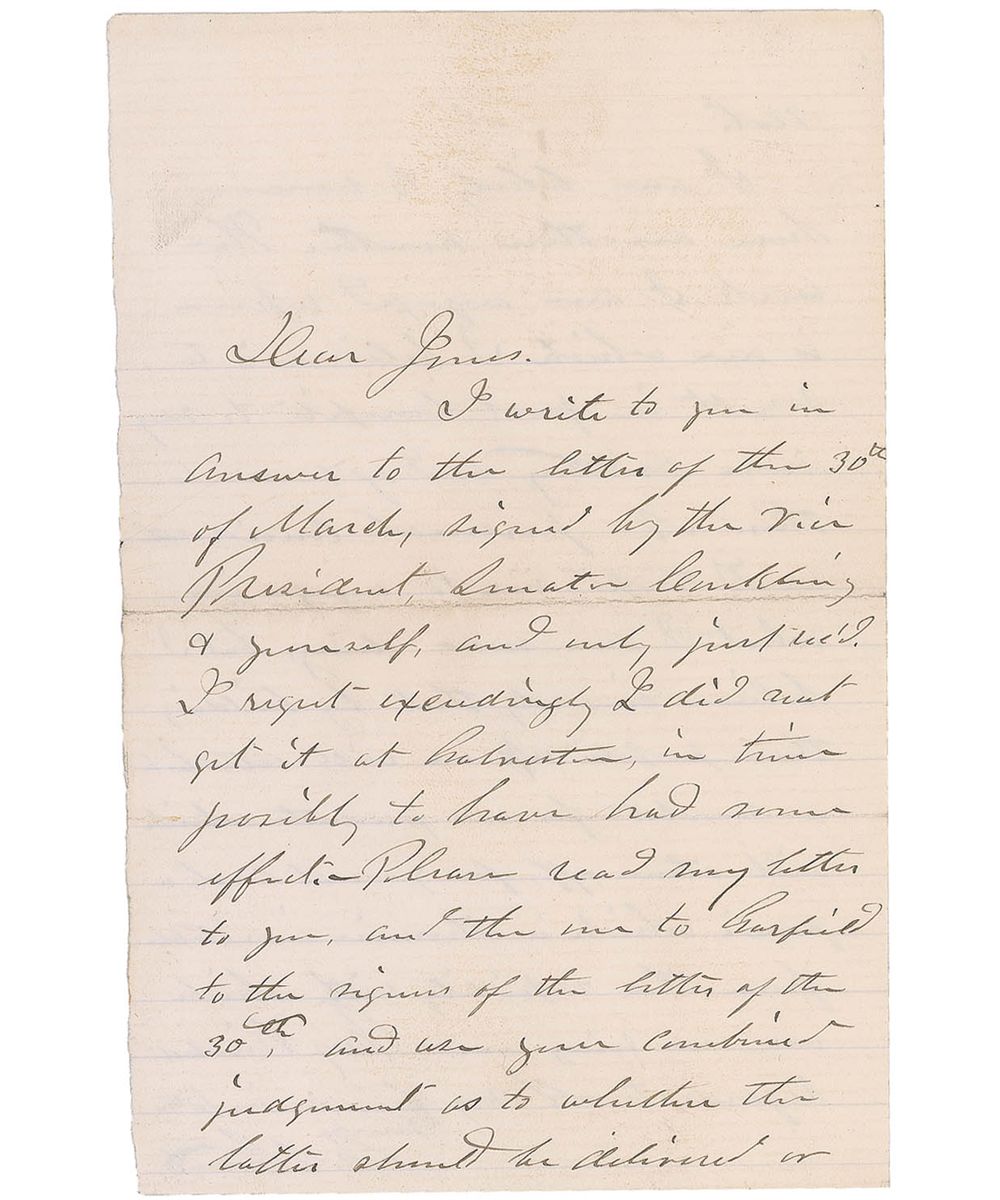 Dear Jones.
I write to you in
answer to the letter of the 30th
of March, signed by the Vice
President, Senator Conkling
& yourself, and only just rec'd.
I regret exceedingly I did not
get it at Galveston, in time
possibly to have had some
effect. – Please read my letter
to you, and the one to Garfield
to the signers of the letter of the
30th, and use your combined
judgement as to whether the
latter should be delivered or